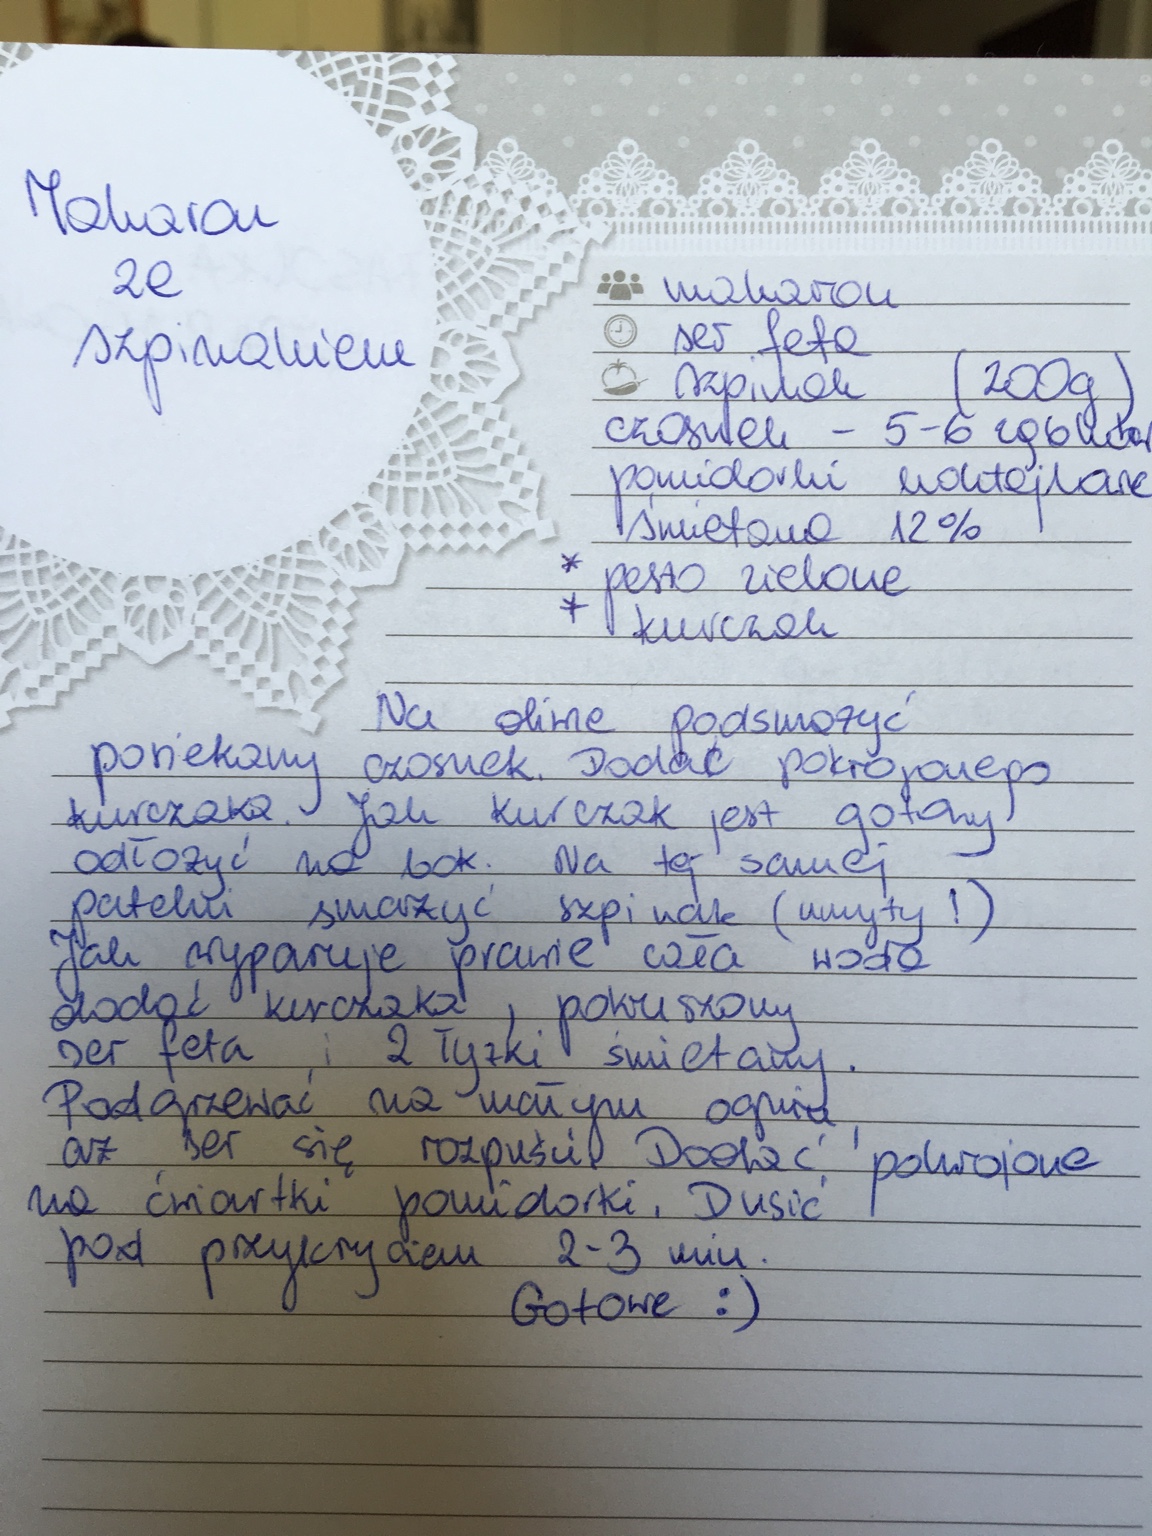 Makaron
ze
szpinakiem
makaron
ser feta
szpinak (200g)
czosnek - 5-6 ząbków
pomidorki koktajlowe
śmietana 12%
* pesto zielone
* kurczak
Na oliwie podsmażyć
posiekany czosnek. Dodać pokrojonego
kurczaka. Jak kurczak jest gotowy
odłożyć na bok. Na tej samej
patelni smażyć szpinak (umyty!)
Jak wyparuje prawie cała woda
dodać kurczaka, pokruszony
ser feta i 2 łyżki śmietany.
Podgrzewać na małym ogniu
aż ser się rozpuści. Dodać pokrojone
na ćwiartki pomidorki. Dusić
pod przykryciem 2-3 min.
Gotowe :)